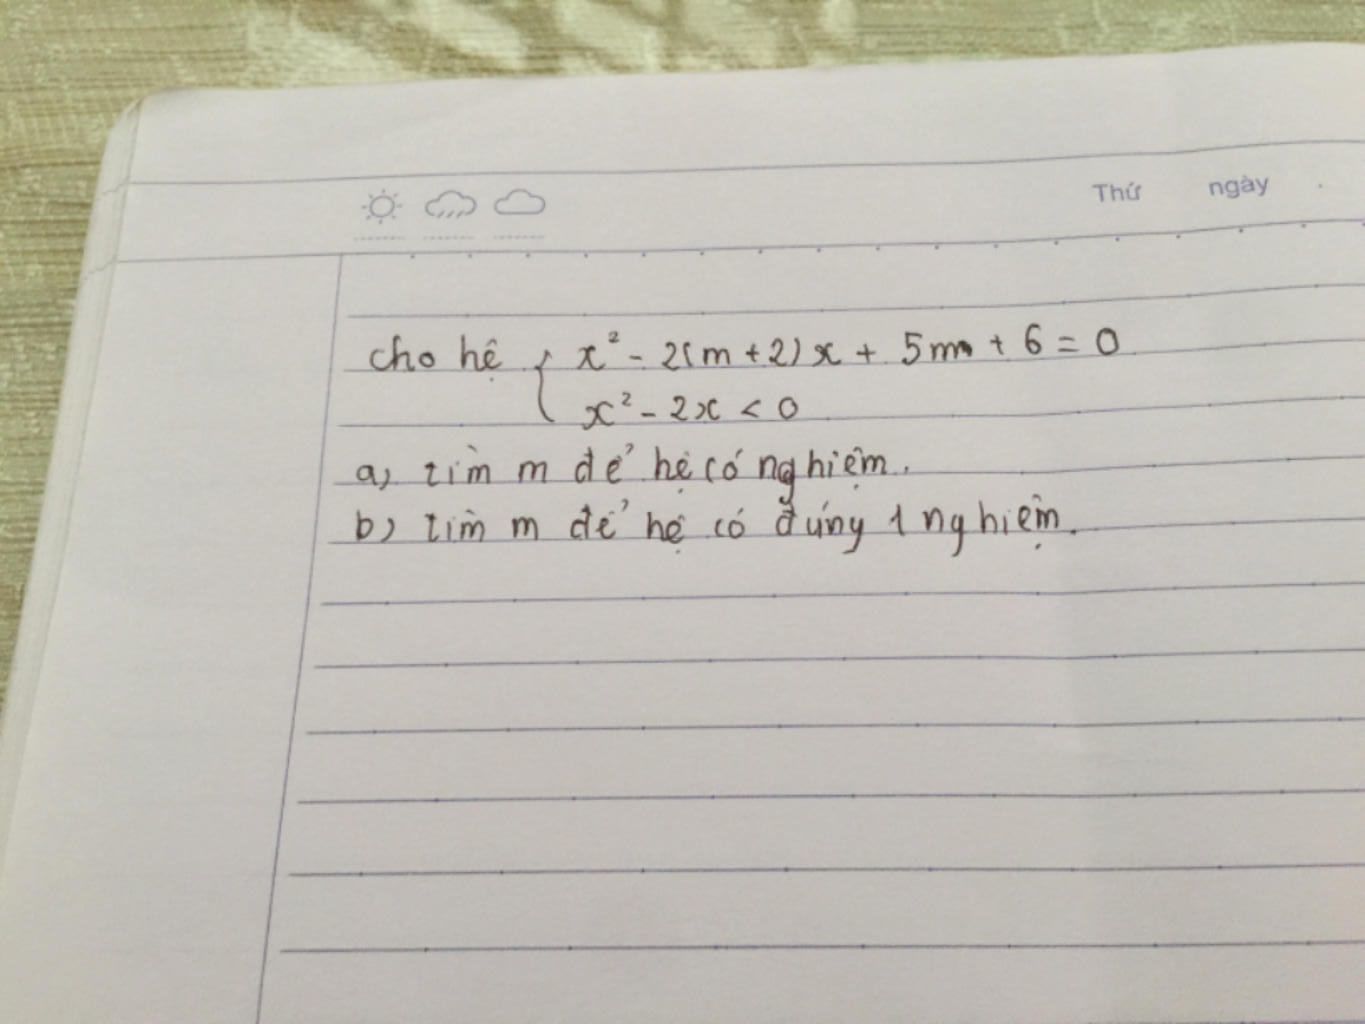 Thứ ngày
cho hệ { x² - 2(m + 2)x + 5m + 6 = 0
x² - 2x < 0
a, tìm m để hệ có nghiệm.
b) tìm m để hệ có đúng 1 nghiệm.